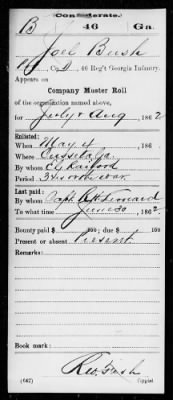 Confederate.
B 46 Ga.
Joel Bush
Co. D, 46 Reg't Georgia Infantry.
Appears on
Company Muster Roll
of the organization named above,
for July & Aug, 1862.
Enlisted:
When May 4, 186
Where Cusseta Ga.
By whom
Period 3 yrs or the war
Last paid:
By whom Capt. Leonard
To what time June 30, 1862.
Bounty paid $ 100; due $ 100
Present or absent Present
Remarks:
Book mark:
(642) Copyist.